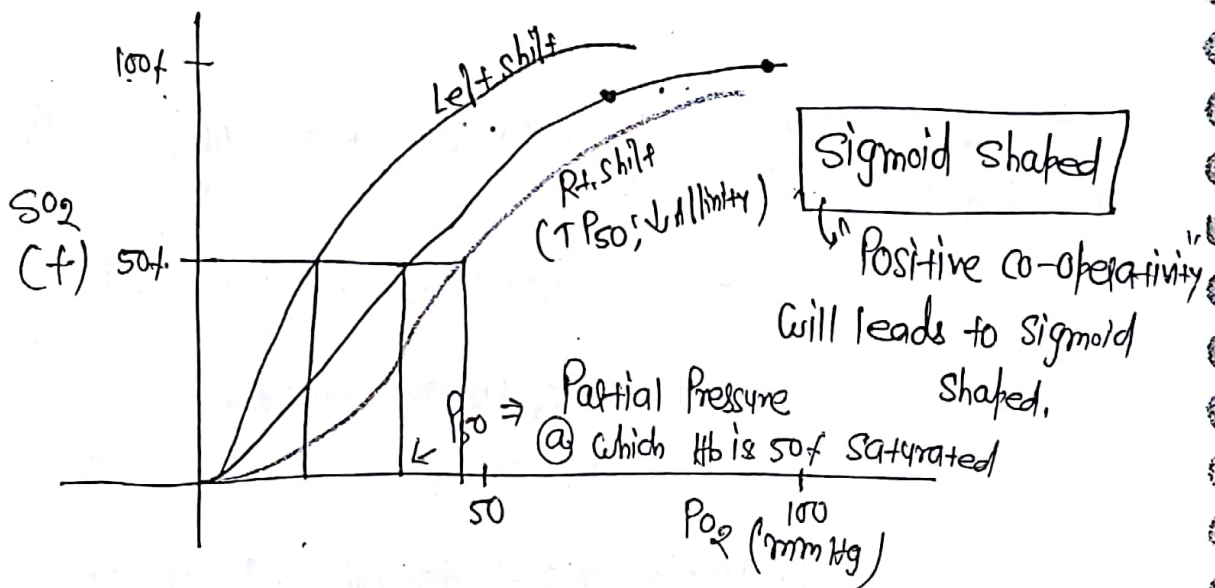 100%
Left shift
SO2
(%)
50%
Rt. shift
(↑P50; ↓Affinity)
Sigmoid shaped
↳ "Positive co-operativity"
will leads to sigmoid
shaped.
P50 ⇒ Partial Pressure
@ which Hb is 50% saturated
50
100
PO2 (mmHg)